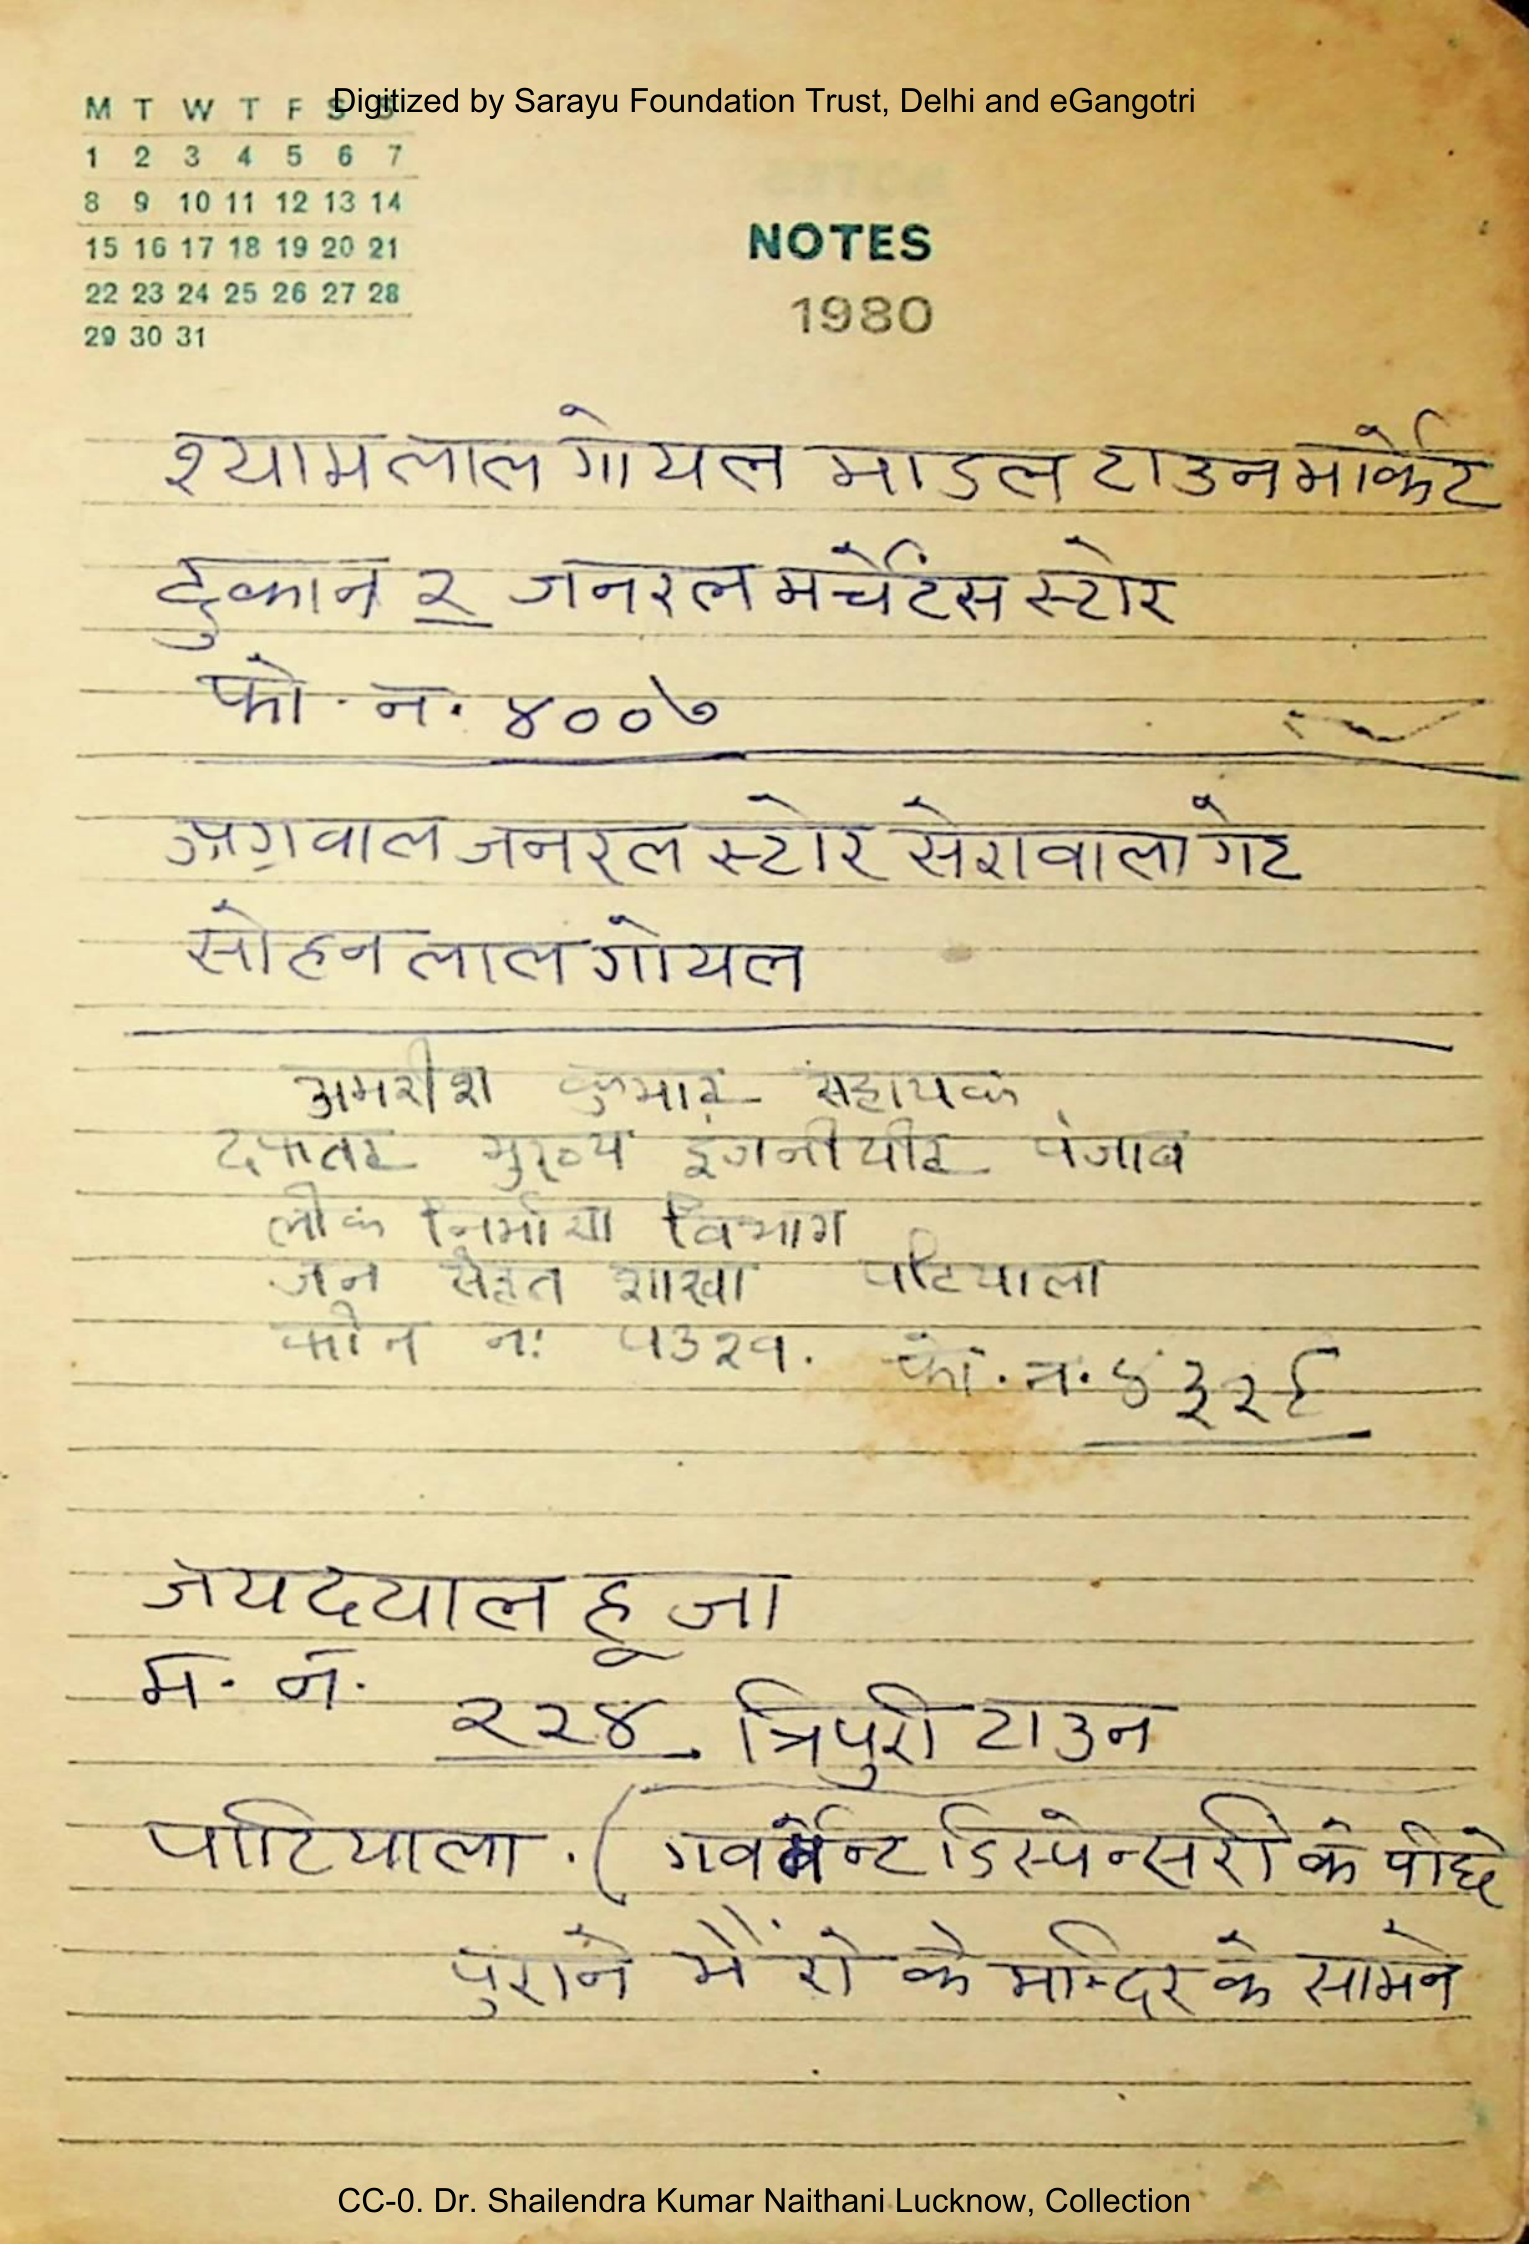 Digitized by Sarayu Foundation Trust, Delhi and eGangotri
M T W T F S S
1 2 3 4 5 6 7
8 9 10 11 12 13 14
15 16 17 18 19 20 21
22 23 24 25 26 27 28
29 30 31
NOTES
1980
श्यामलाल गोयल माडल टाउन मार्केट
दुकान २ जनरल मर्चेंटस स्टोर
फो. न. ४००७
अग्रवाल जनरल स्टोर सेरावाला गेट
सोहन लाल गोयल
अमरीश कुमार सहायक
दफतर मुख्य इंजनीयीर पंजाब
लोक निर्माण विभाग
जन सेहत शाखा पटियाला
फोन न: ५३२१. फो. न. ४३२६
जयदयाल हूजा
म. न.
२२४. त्रिपुरी टाउन
पाटियाला . ( गवर्मेन्ट डिस्पेन्सरी के पीछे
पुराने भैंरो के मन्दिर के सामने
CC-0. Dr. Shailendra Kumar Naithani Lucknow, Collection